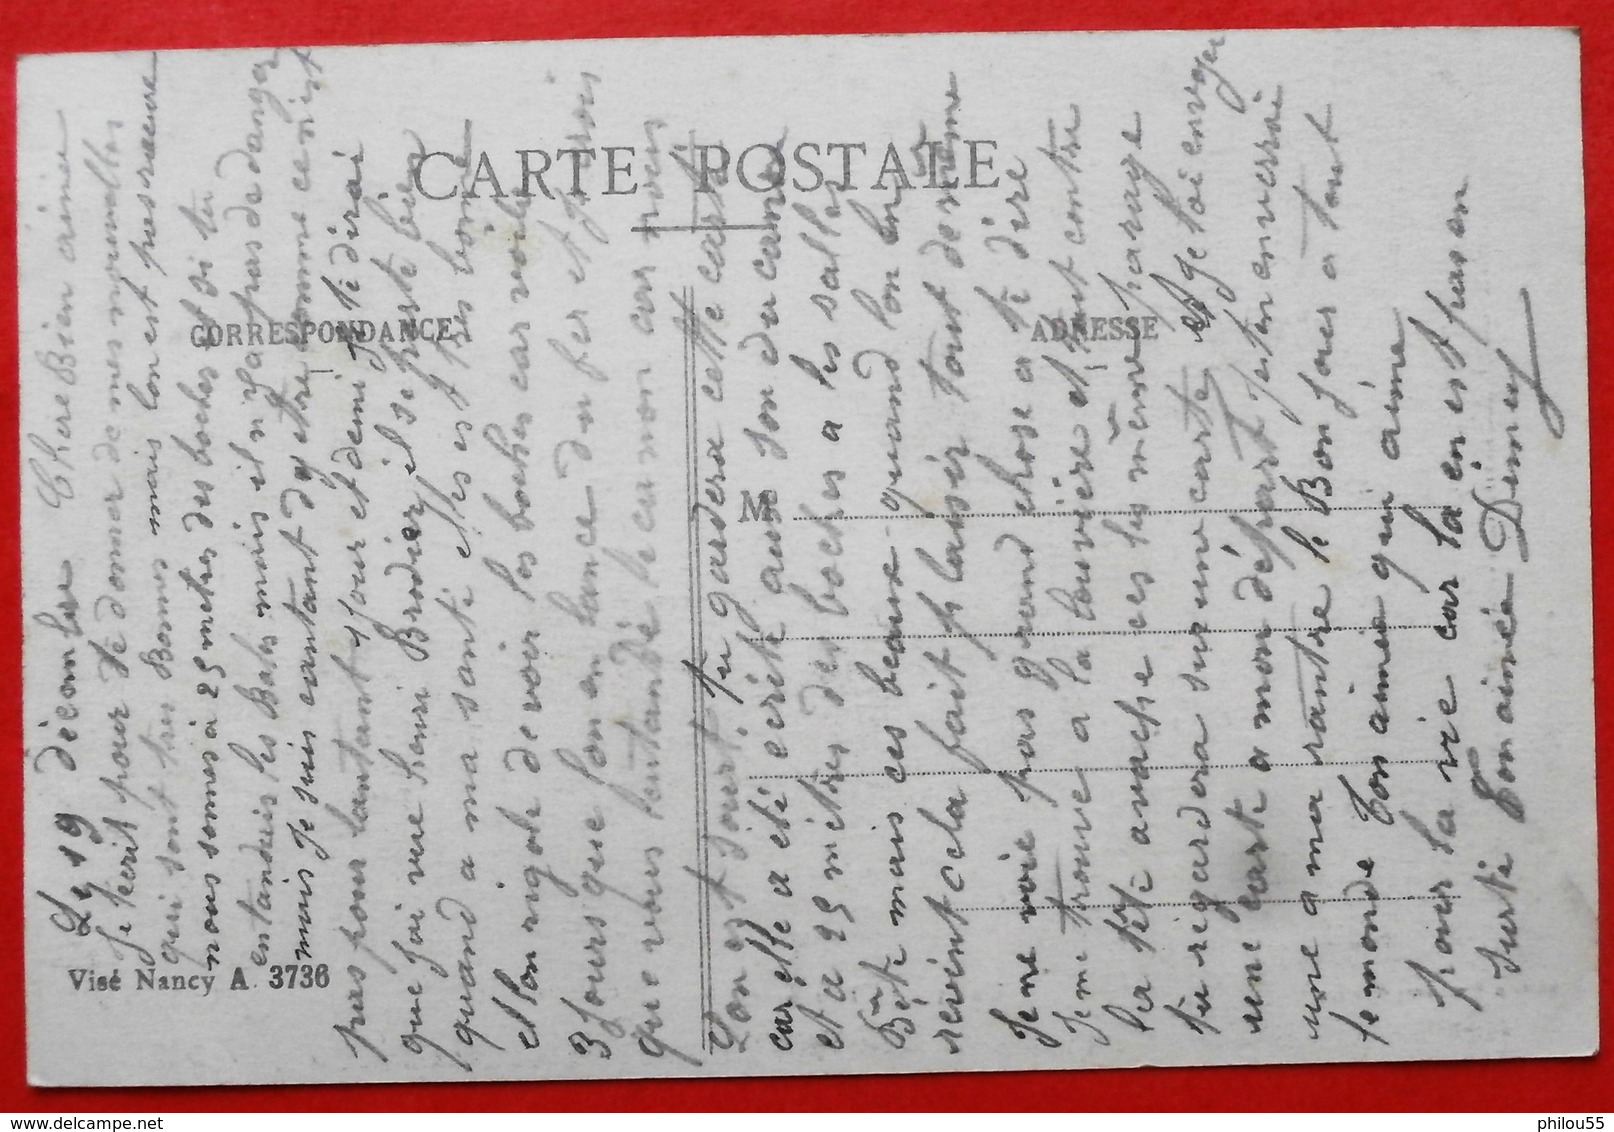 CARTE POSTALE
CORRESPONDANCE
ADRESSE
M
Visé Nancy A. 3736
Le 19 décembre Chere Bien aimé
Je técrit pour te donner de mes nouvelles
qui sont tres Bonnes mais lon est pres
nous sommes à 25 metres des boches toi tu
entandais les Bals mais il n'y a pas de danger
mais je suis contant d'y etre comme ce nist
pas pour lontant 1 jour et demi je te dirai
que jai vue henri Brodier il se porte bien
quand a ma santé elle est tres bonne
et lon rigole de voir les boches car voila
3 jours que lon en lance du fer et je crois
que vous lentandé le canon car nous
Lon est sourt. tu gardera cette carte
car elle a eté écrite au son du canon
et a 25 mètres des boches a les sallos
Bète mais ces beaux quand lon en
revint cela fait plaisir tout de meme
Je ne voie pas grand chose a te dire
Je me trouve a la louvière et tout contre
la fete avache ces les même parage
tu regardera sur une carte et je toi envoyer
une carte a mon départ je ten enverrai
une a ma rantre le Bonjour a tout
le monde Ton aimé qui aime
pour la vie car la en est pas on
surté Ton aimé Dimey
philou55